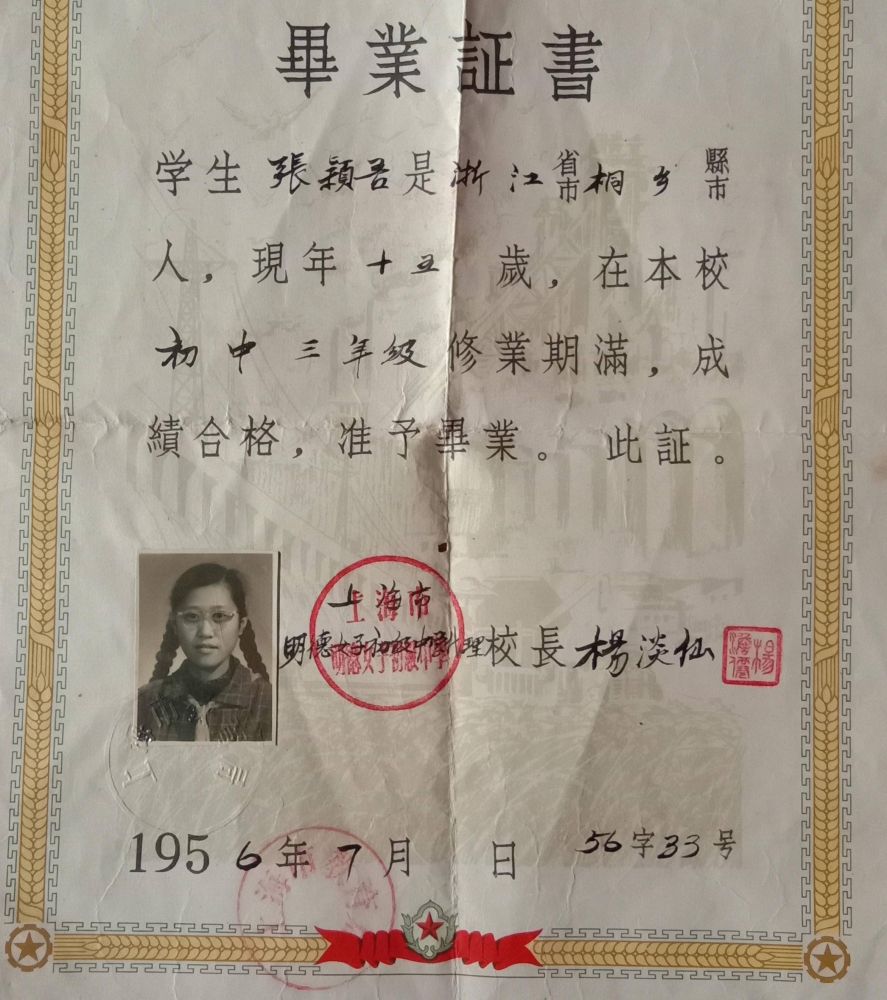 畢業証書
学生 張穎吾是浙江省市桐乡縣市
人，現年十五歲，在本校
初中三年級修業期滿，成
績合格，准予畢業。此証。
上海市
明德女子初級中學代理校長楊淡仙
1956年7月 日 56字33号